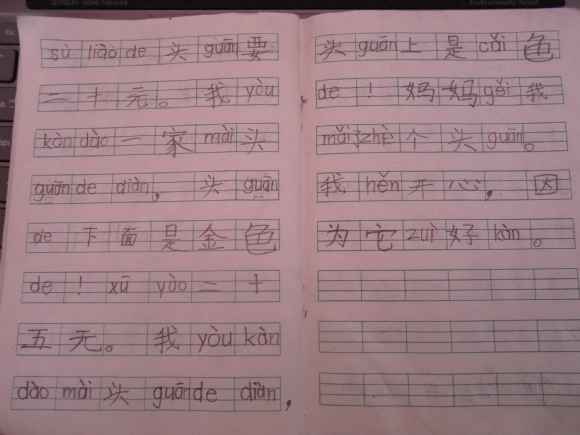 sù liào de 头 guān 要
二十元。我 yòu
kàn dào 一家 mài 头
guān de diàn, 头 guān
de 下面是金色
de! xū yào 二十
五元。我 yòu kàn
dào mài 头 guān de diàn,
头 guān 上是 cǎi 色
de! 妈妈 gěi 我
mǎi zhè 个头 guān。
我 hěn 开心, 因
为它 zuì 好 kàn。